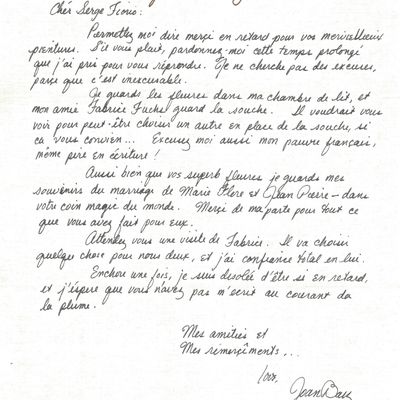 Chér Serge Fiorio:
Permettez moi dire merçi en retard pour vos merveilleux
peintures. S'il vous plait, pardonnez-moi cette temps prolongé
que j'ai pris pour vous répondre. Je ne cherche pas des excuses,
parçe que c'est inexcusable.
Je guards les fleures dans ma chambre de lit, et
mon amie Fabrice Fuchs guard la souche. Il voudrait vous
voir pour peut-être choisir un autre en place de la souche, si
ca vous convien... Excusez moi aussi mon pauvre français,
même pire en écriture!
Aussi bien que vos superb fleures je guards mes
souvenirs du marriage de Marie Flore et Jean Pierre - dans
votre coin magic du monde. Merçi de ma parte pour tout ce
que vous avez fait pour eux.
Attendez vous une visite de Fabrice. Il va choisi
quelque chose pour nous deux, et j'ai confiance total en lui.
Enchore une fois, je suis desolée d'être si en retard,
et j'éspere que vous n'avez pas m'ecrit au courant da
la plume.
Mes amitiés et
Mes remerçiments...
Joan Bax